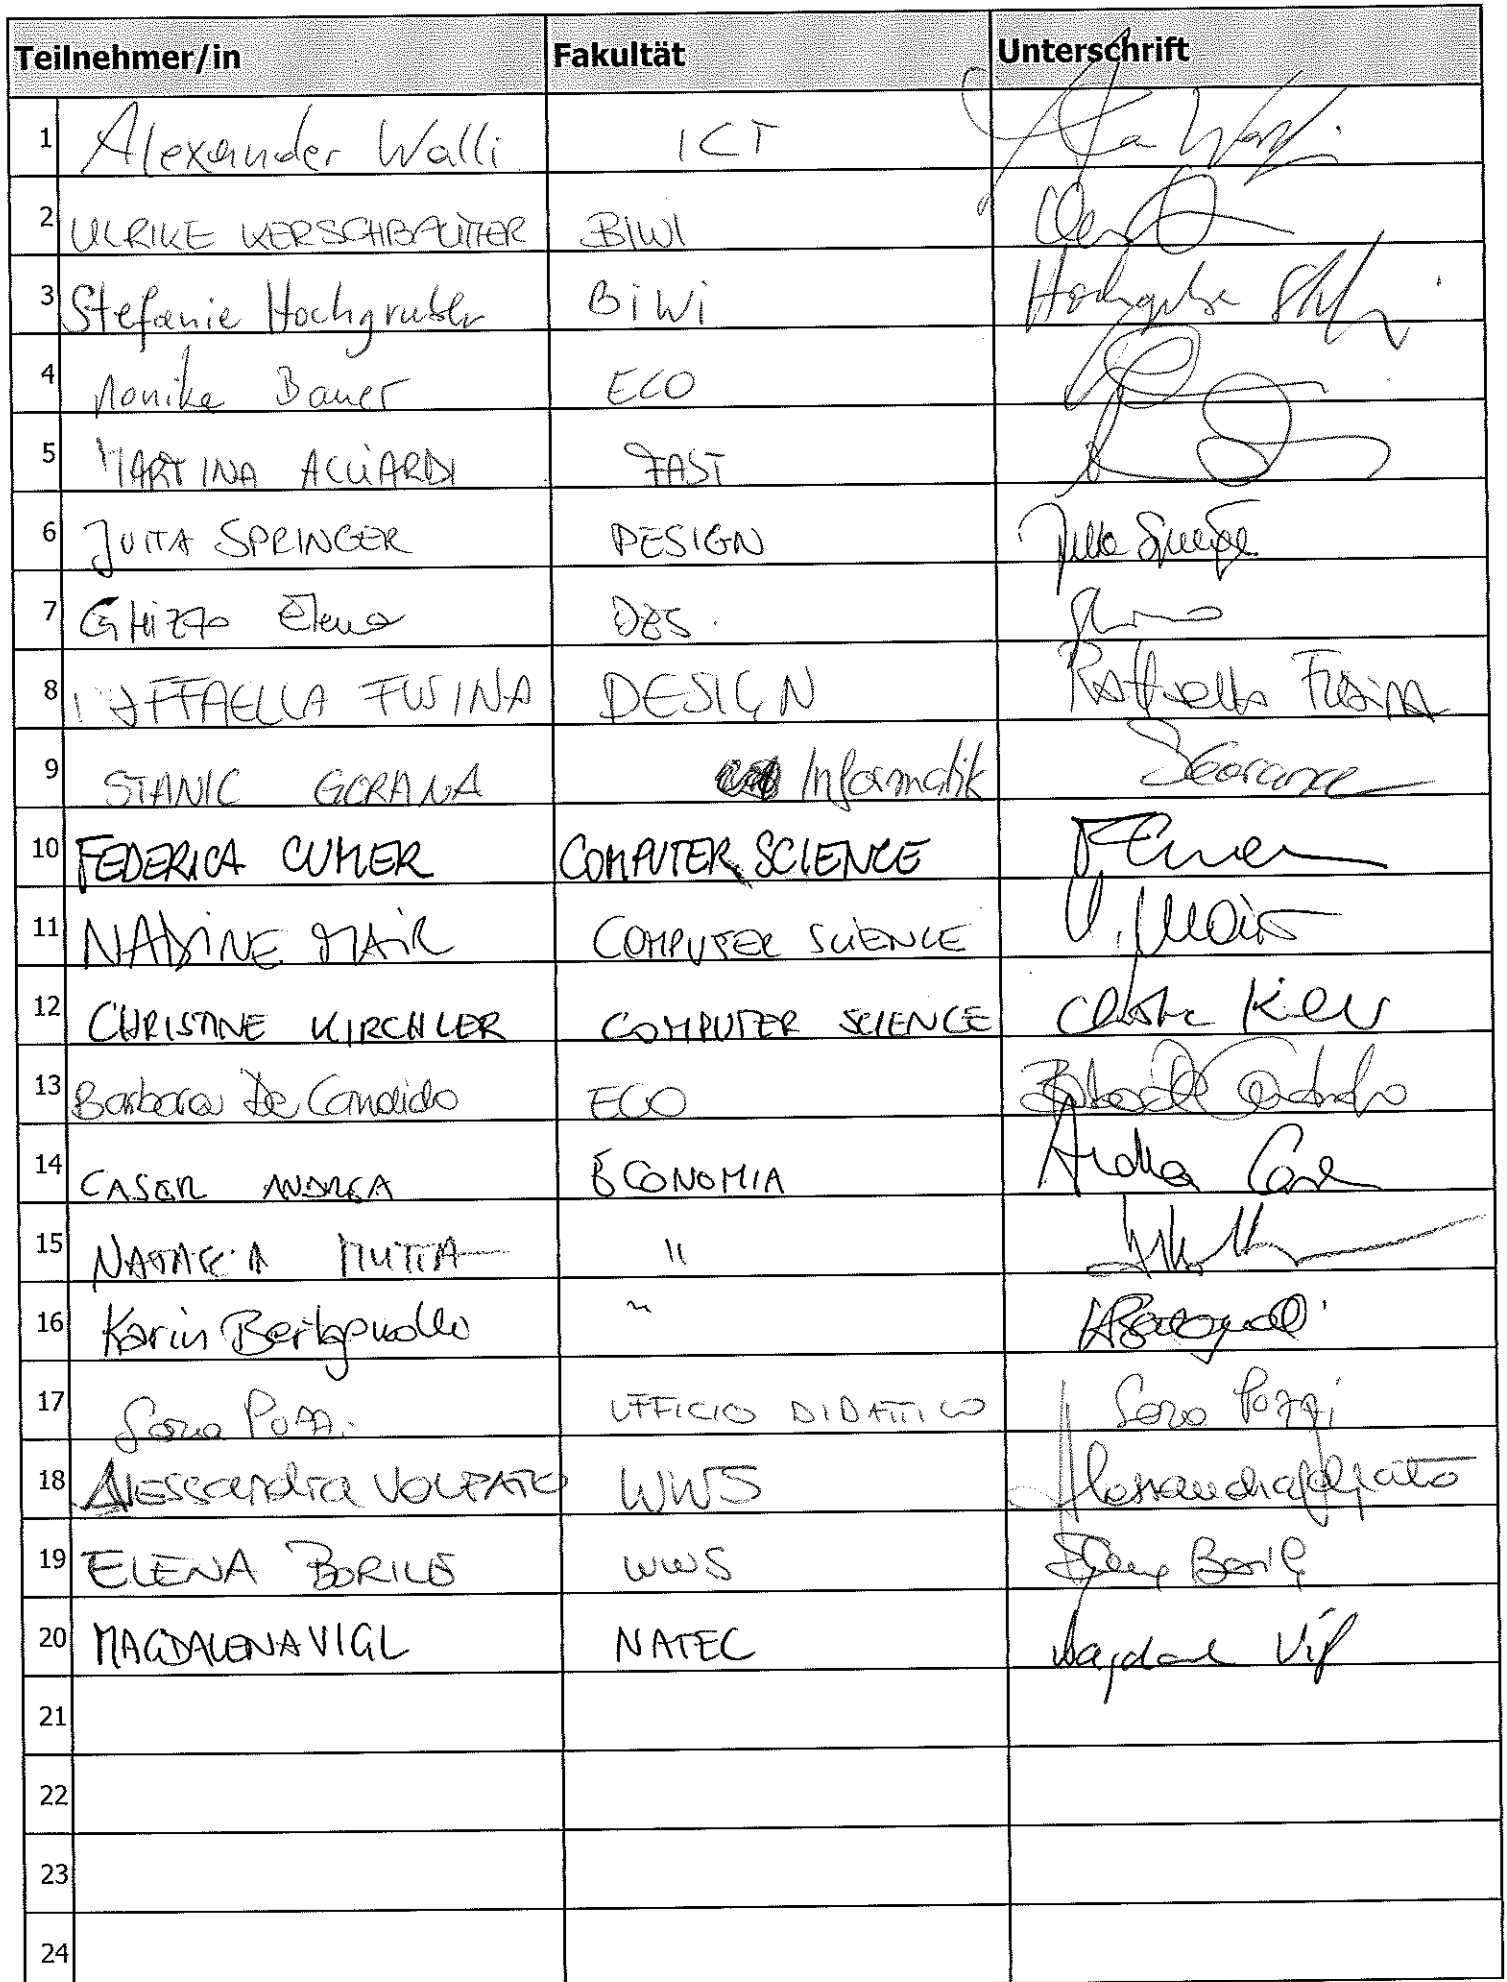 Teilnehmer/in Fakultät Unterschrift
1 Alexander Walli ICT
2 ULRIKE KERSCHBAUMER BIWI
3 Stefanie Hochgruber BiWi
4 Monika Bauer ECO
5 MARTINA FAST
6 JUTTA SPRINGER DESIGN Jutta Springer
7 GHIZZO Elena DES.
8 RAFFAELLA FUSINA DESIGN Raffaella FUSINA
9 STANIC GORANA Informatik
10 FEDERICA CUMER COMPUTER SCIENCE
11 NADINE MAIR COMPUTER SCIENCE N. Mair
12 CHRISTINE KIRCHLER COMPUTER SCIENCE
13 Barbara De Candido ECO
14 CASER ANDREA ECONOMIA Andrea Caser
15 "
16 Karin Bertagnolli "
17 Sara Pozzi UFFICIO DIDATTICO Sara Pozzi
18 Alessandra VOLPATO WWS Alessandra Volpato
19 ELENA BORILE WWS Elena Borile
20 MAGDALENA VIGL NATEC
21
22
23
24